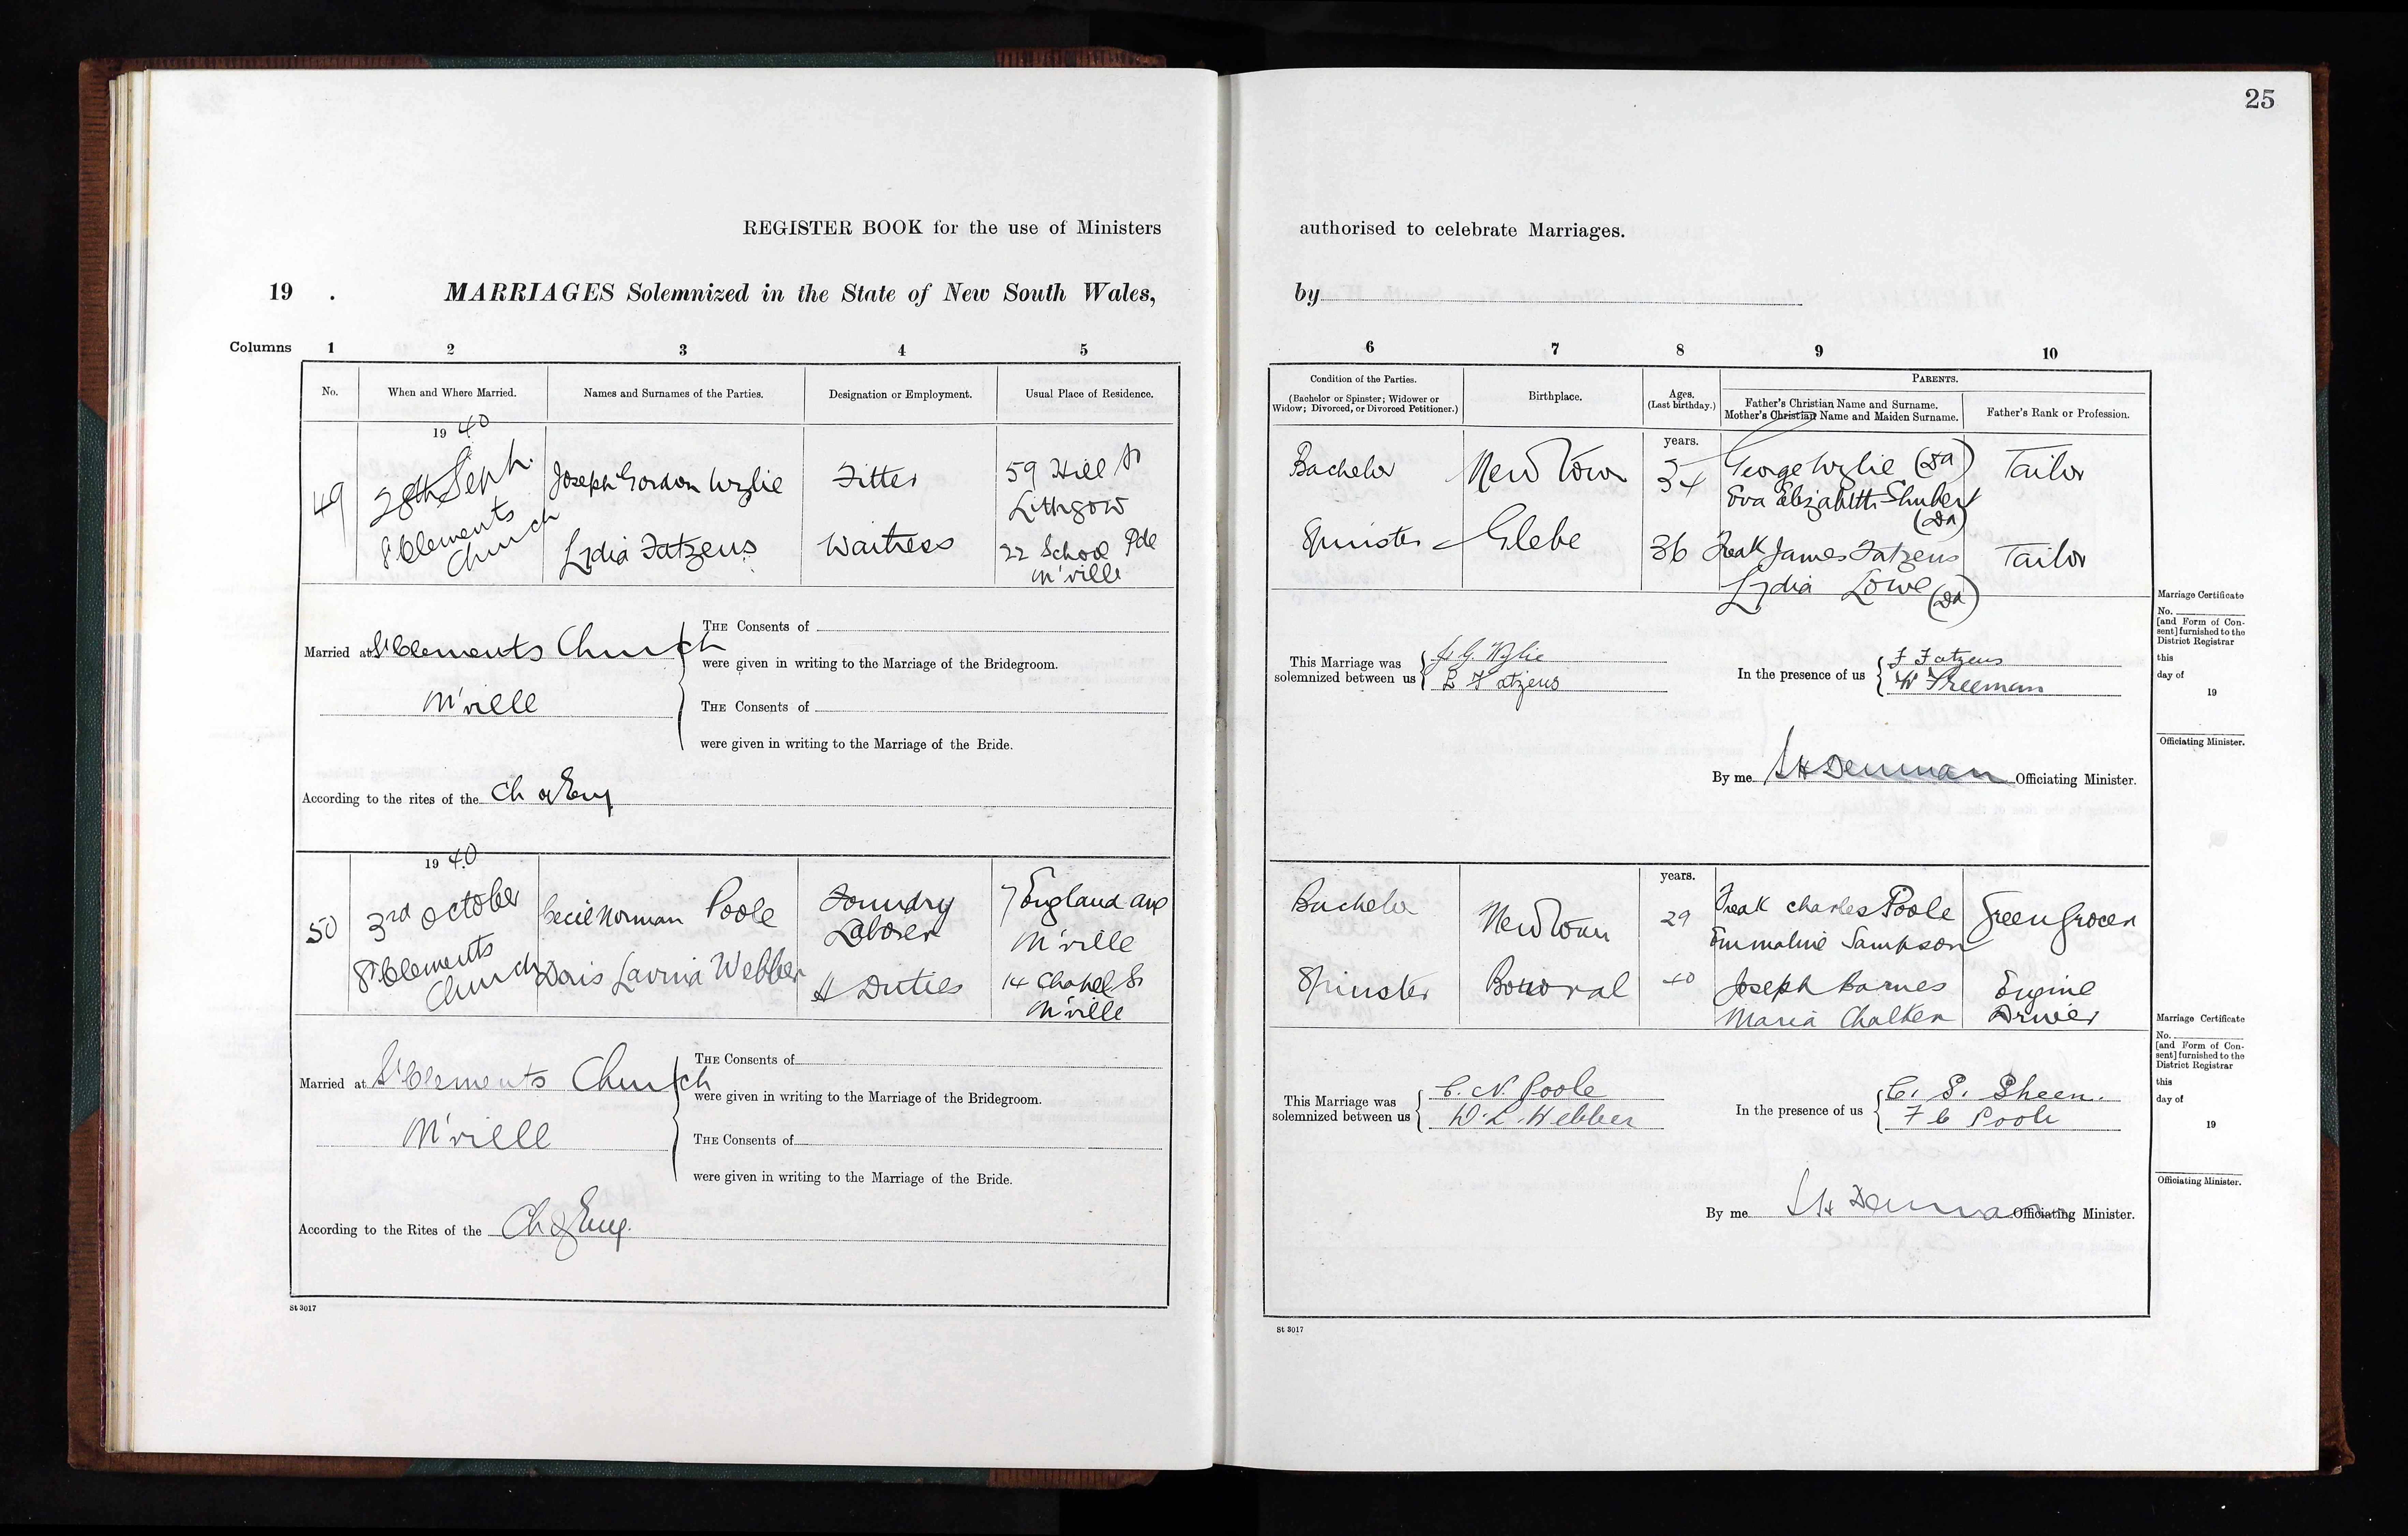 25
REGISTER BOOK for the use of Ministers authorised to celebrate Marriages.
19 . MARRIAGES Solemnized in the State of New South Wales, by
Columns 1 2 3 4 5 6 7 8 9 10
No.
When and Where Married.
Names and Surnames of the Parties.
Designation or Employment.
Usual Place of Residence.
Condition of the Parties.
(Bachelor or Spinster; Widower or
Widow; Divorced, or Divorced Petitioner.)
Birthplace.
Ages.
(Last birthday.)
PARENTS.
Father's Christian Name and Surname.
Mother's Christian Name and Maiden Surname.
Father's Rank or Profession.
49
19 40
28th Sept.
St Clements
Church
Joseph Gordon Wylie
Fitter
59 Hill St
Lithgow
Bachelor
Newtown
years.
34
George Wylie (Dd)
Eva Elizabeth Shubert
(Dd)
Tailor
Lydia Fatzeus
Waitress
22 School Pde
M'ville
Spinster
Glebe
36
Freak James Fatzeus
Lydia Lowe (Dd)
Tailor
Married at St Clements Church
M'ville
THE Consents of
were given in writing to the Marriage of the Bridegroom.
THE Consents of
were given in writing to the Marriage of the Bride.
According to the rites of the Ch of Eng
This Marriage was
solemnized between us
J. G. Wylie
L Fatzeus
In the presence of us
F Fatzeus
W Freeman
By me Denman Officiating Minister.
Marriage Certificate
No.
[and Form of Con-
sent] furnished to the
District Registrar
this
day of
19
Officiating Minister.
50
19 40
3rd October
St Clements
Church
Cecil Norman Poole
Foundry
Laborer
7 England ave
M'ville
Bachelor
Newtown
years.
29
Freak Charles Poole
Emmaline Sampson
Green Grocer
Doris Lavinia Webber
H Duties
14 Chapel St
M'ville
Spinster
Bowral
40
Joseph Barnes
Maria Chalker
Engine
Driver
Married at St Clements Church
M'ville
THE Consents of
were given in writing to the Marriage of the Bridegroom.
THE Consents of
were given in writing to the Marriage of the Bride.
According to the Rites of the Ch of Eng.
This Marriage was
solemnized between us
C. N. Poole
D. L. Webber
In the presence of us
C. S. Sheen.
F C Poole
By me Denman Officiating Minister.
Marriage Certificate
No.
[and Form of Con-
sent] furnished to the
District Registrar
this
day of
19
Officiating Minister.
St 3017
St 3017